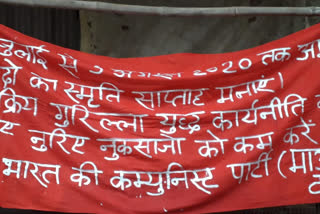 जुलाई से 3 अगस्त 2020 तक
का स्मृति सप्ताह मनाएं।
गुरिल्ला युद्ध कार्यनीति
नुकसानों को कम करें
भारत की कम्युनिस्ट पार्टी (मा